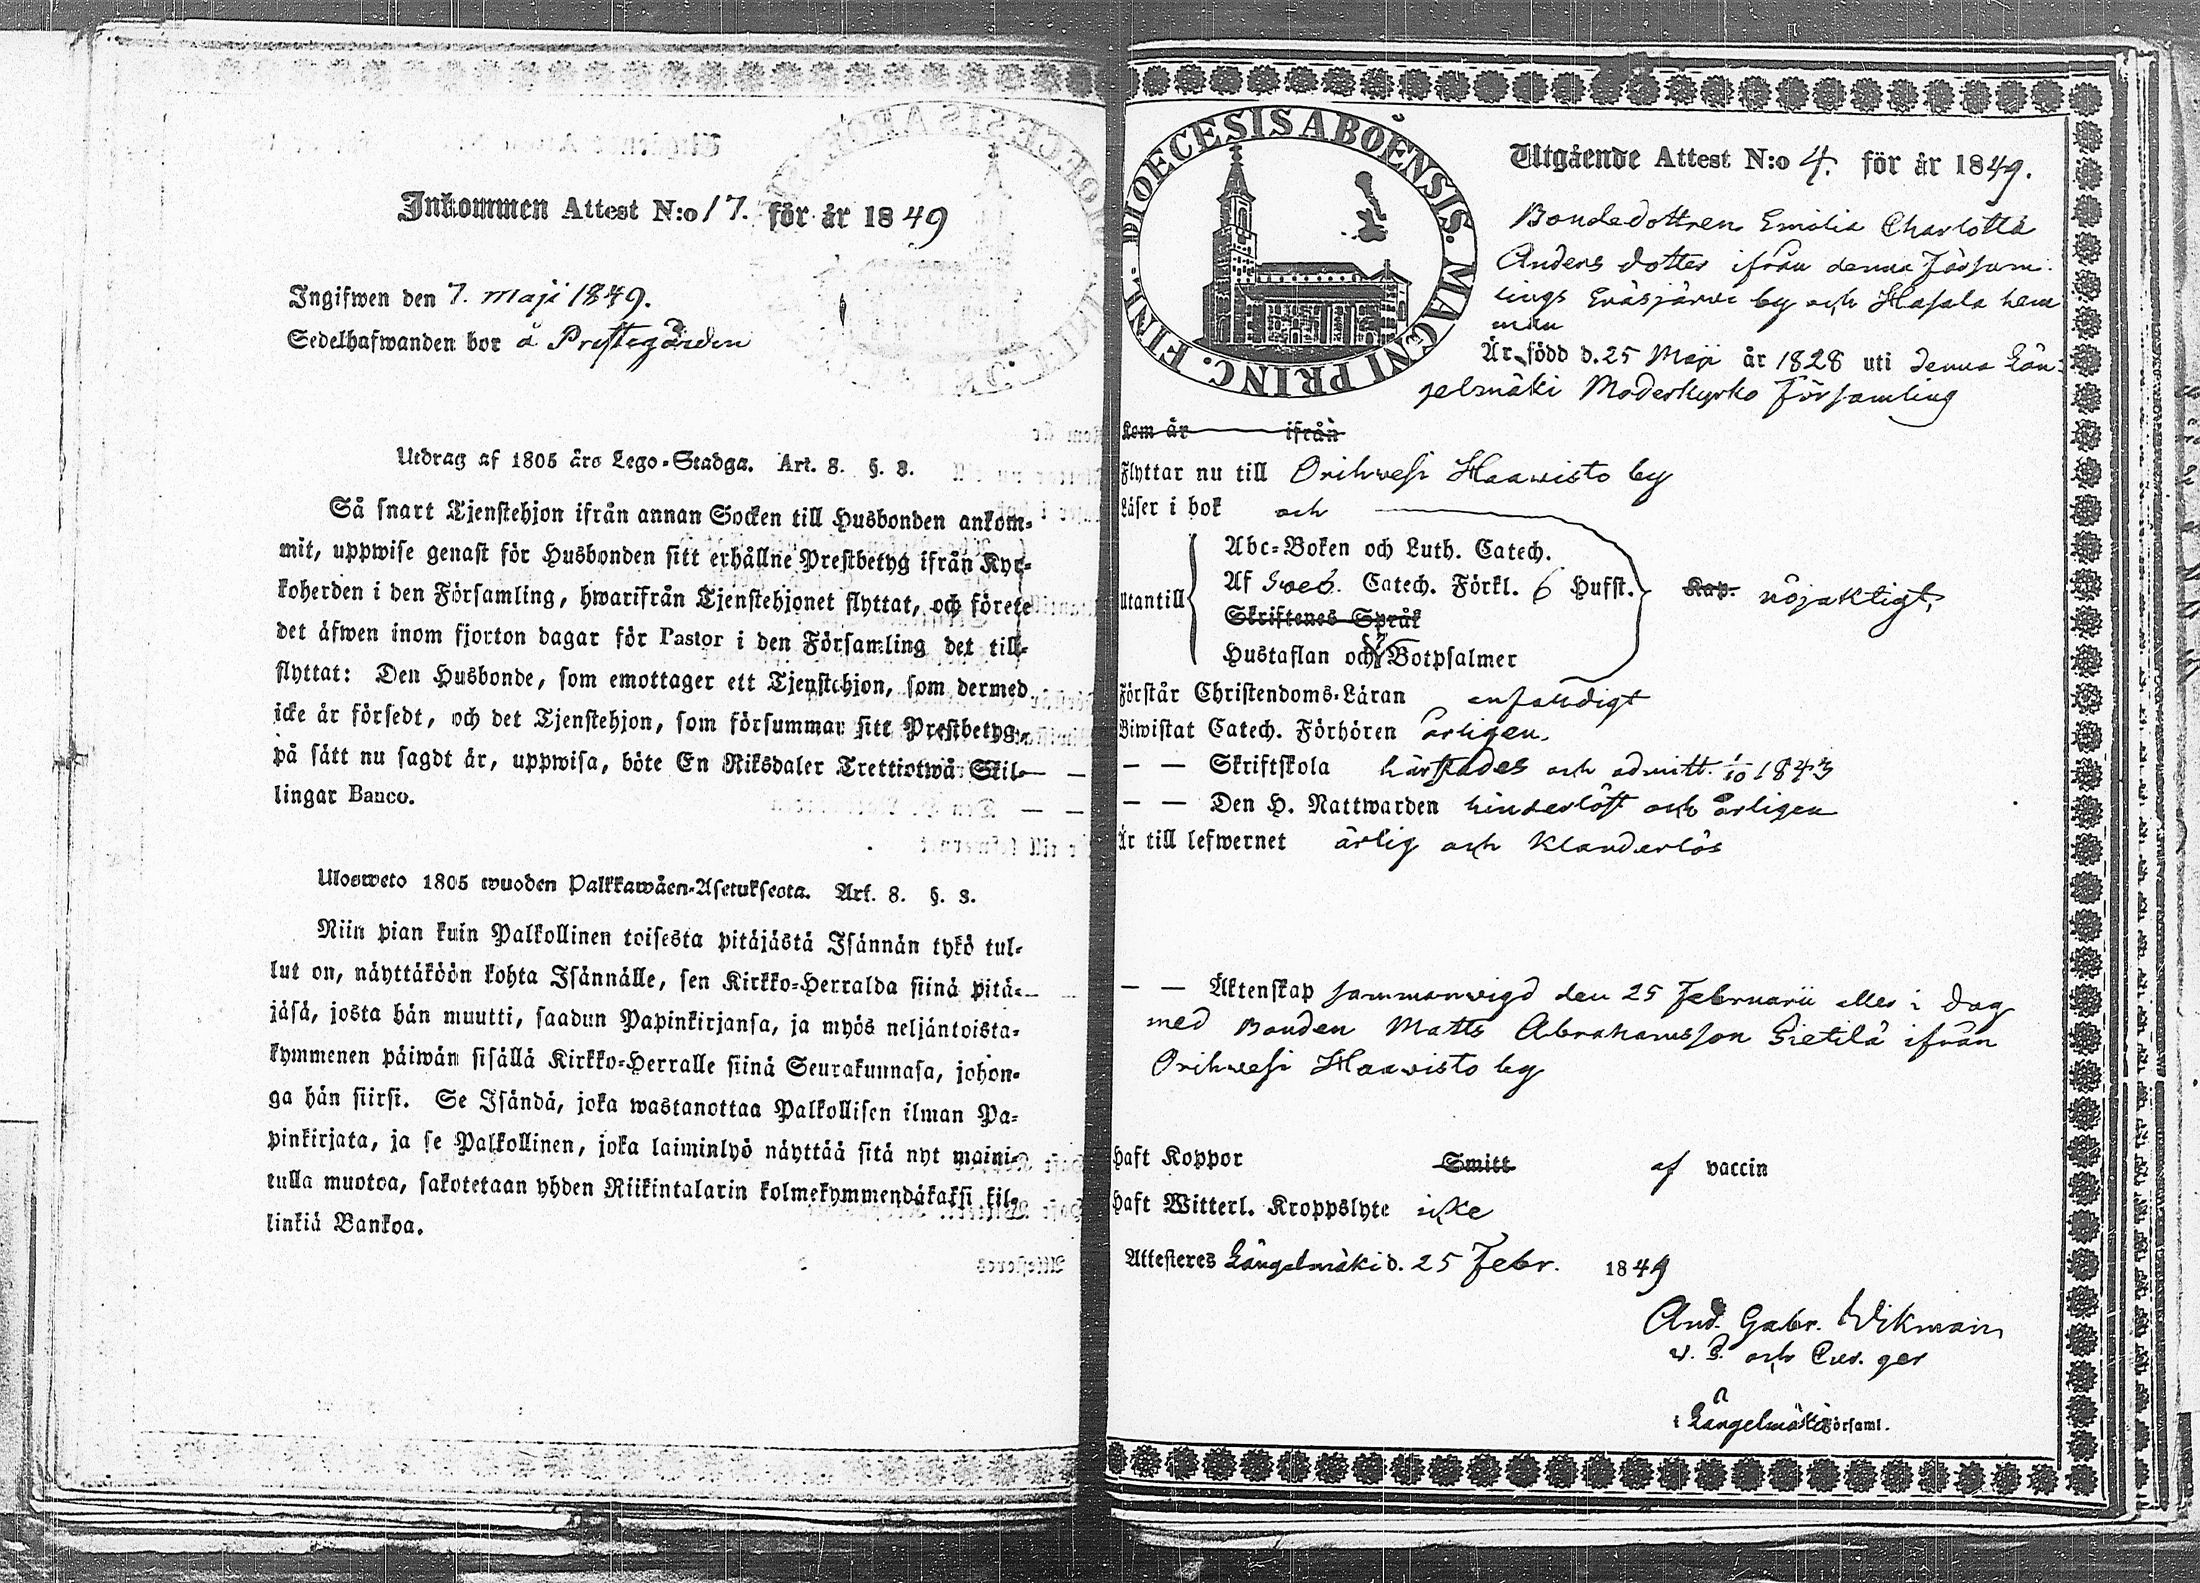 Inkommen Attest N:o 17. för år 1849
Ingifwen den 7. Maji 1849.
Sedelhafwanden bor å Prestegården
Utdrag af 1805 års Lego-Stadga. Art. 8. §. 3.
Så snart Tjenstehjon ifrån annan Socken till Husbonden ankom-
mit, uppwise genast för Husbonden sitt erhållne Prestbetyg ifrån Kyr-
koherden i den Församling, hwarifrån Tjenstehjonet flyttat, och förete
det äfwen inom fjorton dagar för Pastor i den Församling det till-
flyttat: Den Husbonde, som emottager ett Tjenstehjon, som dermed
icke är försedt, och det Tjenstehjon, som försummar sitt Prestbetyg,
på sätt nu sagdt är, uppwisa, böte En Riksdaler Trettiotwå Skil-
lingar Banco.
Ulosweto 1805 wuoden Palkkawäen-Asetuksesta. Art. 8. §. 3.
Niin pian kuin Palkollinen toisesta pitäjästä Isännän tykö tul-
lut on, näyttäköön kohta Isännälle, sen Kirkko-Herralda siinä pitä-
jäsä, josta hän muutti, saadun Papinkirjansa, ja myös neljäntoista-
kymmenen päiwän sisällä Kirkko-Herralle siinä Seurakunnasa, johon-
ga hän siirsi. Se Isändä, joka wastanottaa Palkollisen ilman Pa-
pinkirjata, ja se Palkollinen, joka laiminlyö näyttää sitä nyt maini-
tulla muotoa, sakotetaan yhden Riikintalarin kolmekymmendäkaksi kil-
linkiä Bankoa.
DIOECESIS ABOËNSIS. MAGNI PRINC. FINL.
Utgående Attest N:o 4. för år 1849.
Bondedottren Emilia Charlotta
Anders dotter ifrån denna Försam-
lings Eräsjärwi by och Hasala hem
man
Är född d. 25 Maji år 1828 uti denna Län-
gelmäki Moderkyrko Församling
Kom år ifrån
Flyttar nu till Orihwesi Haawisto by
Läser i bok och
Abc-Boken och Luth. Catech.
Utantill Af Sweb. Catech. Förkl. 6 Hufst. Kap. nöjaktigt,
Skriftenes Språk
Hustaflan och Botpsalmer
Förstår Christendoms-Läran enfaldigt
Biwistat Catech. Förhören årligen.
— — Skriftskola härstädes och admitt. 1/10 1843
— — Den H. Nattwarden hinderlöst och årligen
Är till lefwernet ärlig och klanderlös
— — Äktenskap sammanvigd den 25 Februarii eller i dag
med Bonden Matts Abrahamsson Pietilä ifrån
Orihwesi Haawisto by
Haft Koppor Smitt af vaccin
Haft Witterl. Kroppslyte icke
Attesteres Längelmäki d. 25 Febr. 1849
And. Gabr. Wikman
v. P. och
i Längelmäki Församl.